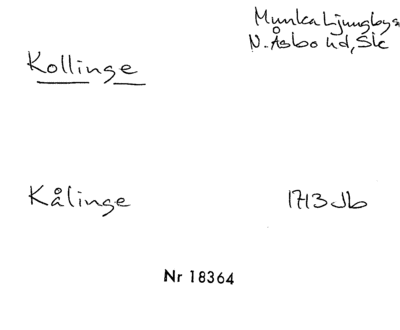 Munka Ljungby sn
N. Åsbo hd, Sk
Kollinge
Kålinge 1713 Jb
Nr 18364